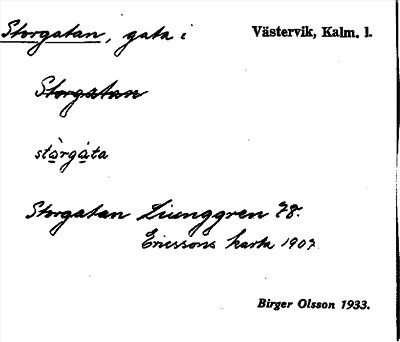 Storgatan, gata i Västervik, Kalm. l.
Storgatan
stòrgáta
Storgatan Ljunggren 78.
Ericssons karta 1907
Birger Olsson 1933.